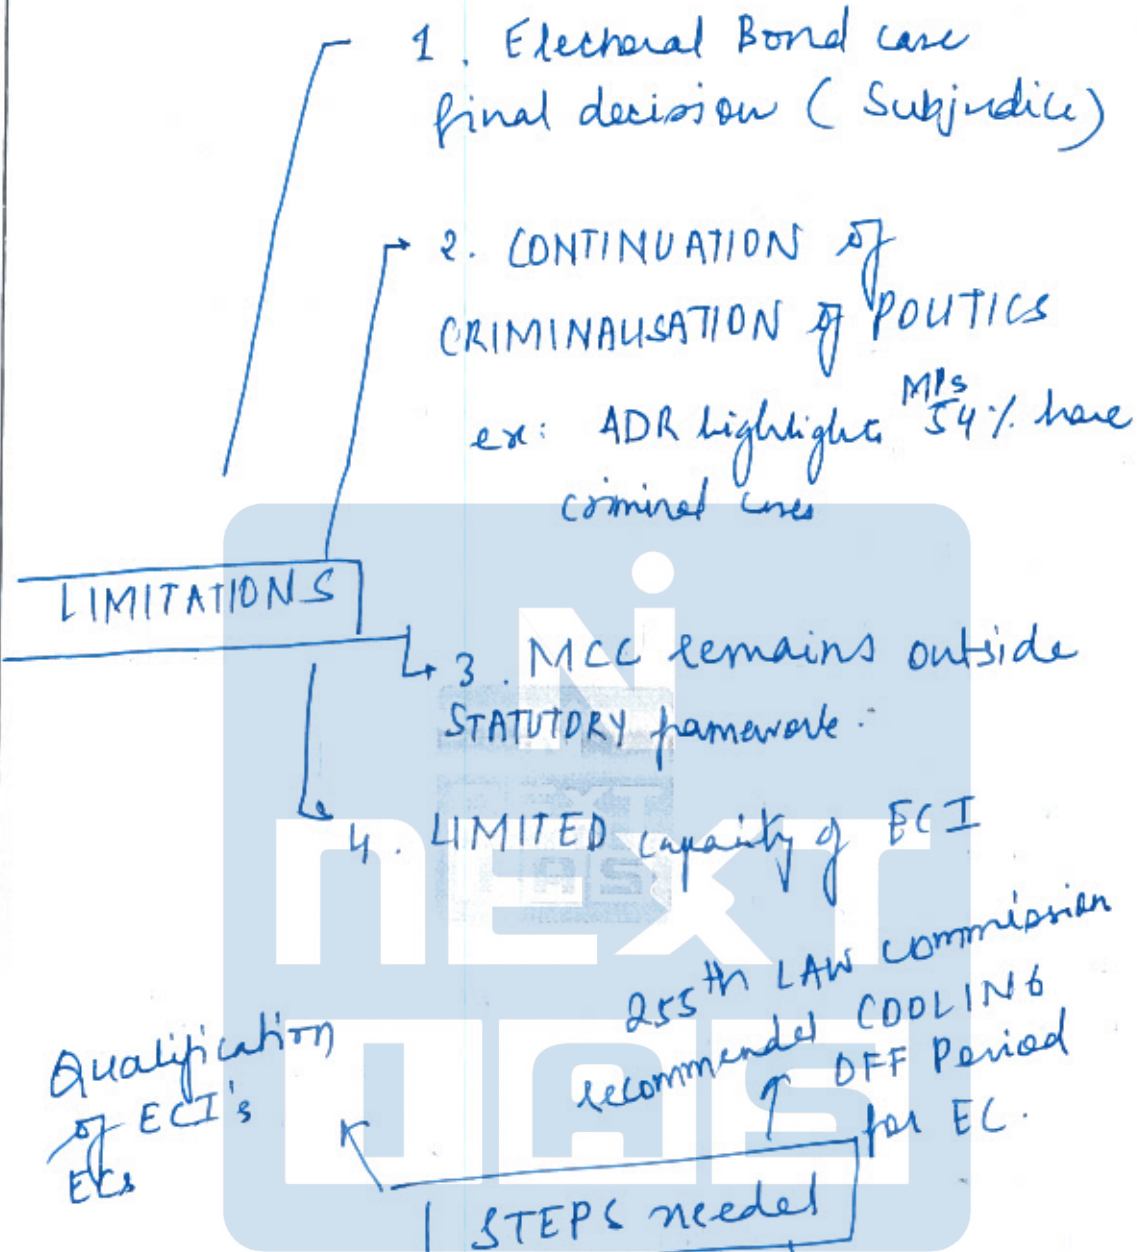 1. Electoral Bond case
final decision (Subjudice)
2. CONTINUATION of
CRIMINALISATION of POLITICS
ex: ADR highlights MPs 54% have
criminal cases
LIMITATIONS
3. MCC remains outside
STATUTORY framework.
4. LIMITED capacity of ECI
255th LAW commission
recommended COOLING
OFF Period
for EC.
Qualification
of ECI's
ECs
STEPS needed
NEXT
IAS